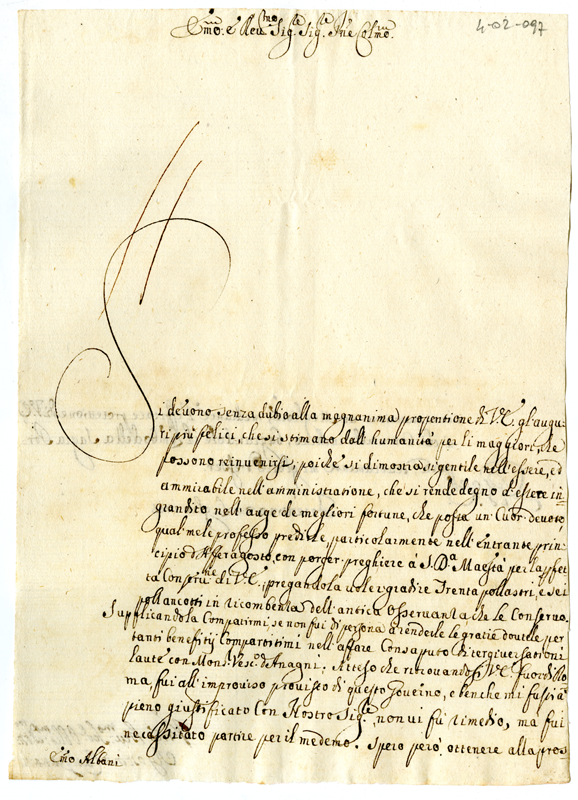 4-02-097
Emo: e Reu:mo Sig:re Sig:re Pne Colmo:
Si deuono senza dubio alla magnanima propentione di V.E. gl'augu-
rij più felici, che si stimano dall'humanità per li maggiori, che
possono reinuenirsi, poiche si dimostra si gentile nell'essere, ed
ammirabile nell'amministratione, che si rende degno d'essere in-
grandito nell'auge de megliori fortune, che possa un Cuor deuoto,
qual me le professo predirle, particolarmente nell'entrante prin-
cipio di Feragosto, con porger preghiere à S. D.a Maestà per la pfet-
ta Conseru:ne di V.E., pregandola uoler gradire Trenta pollastri, e sei
pollancotti in ricombenza dell'antica Osseruanza che le Conseruo.
Supplicandola Compatirmi se non fui di persona à renderle le gratie douute per
tanti benefitij Compartitimi nell'affare Consaputo di tergiuersationi
hauute con Mons:r Vesc:o di Anagni: Atteso che ritrouandosi V.E. fuor di Ro-
ma, fui all'improuiso prouisto di questo Gouerno, e benche mi fussi à
pieno giustificato Con Nostro Sig:re, non ui fù rimedio, ma fui
necessitato partire per il medemo. Spero però ottenere alla pros
Emo Albani